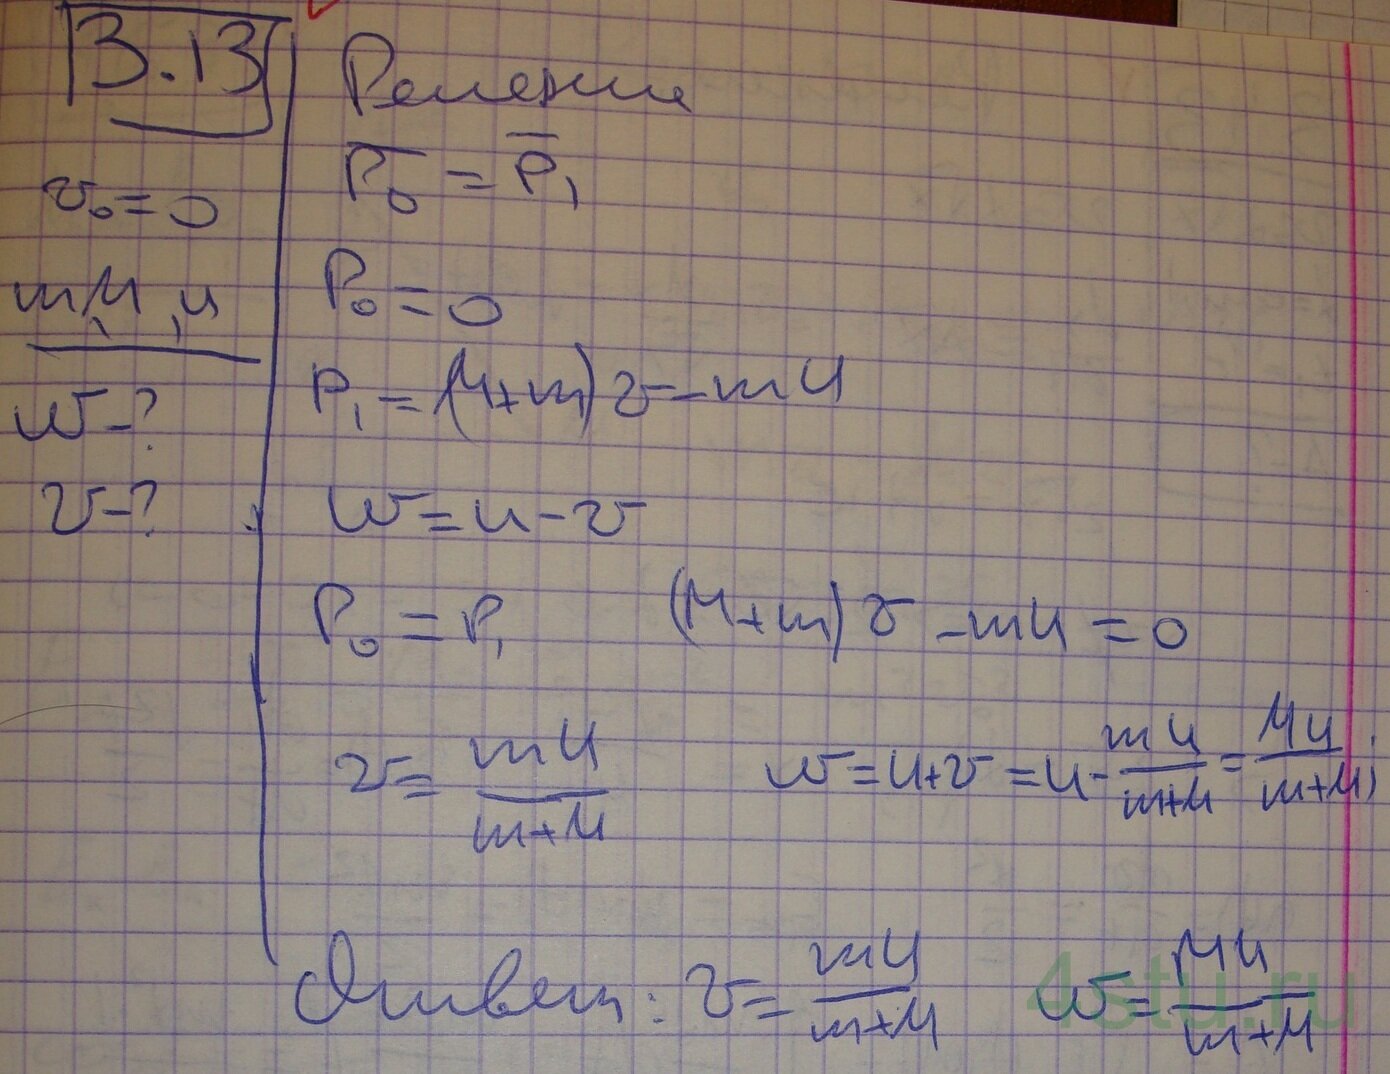 3.13
Решение
v₀ = 0
m, M, u
w - ?
v - ?
P̅₀ = P̅₁
P₀ = 0
P₁ = (M+m)v - mu
w = u - v
P₀ = P₁ (M+m)v - mu = 0
v = mu/(m+M) w = u+v = u - mu/(m+M) = Mu/(m+M);
Ответ: v = mu/(m+M) w = Mu/(m+M)
4stu.ru